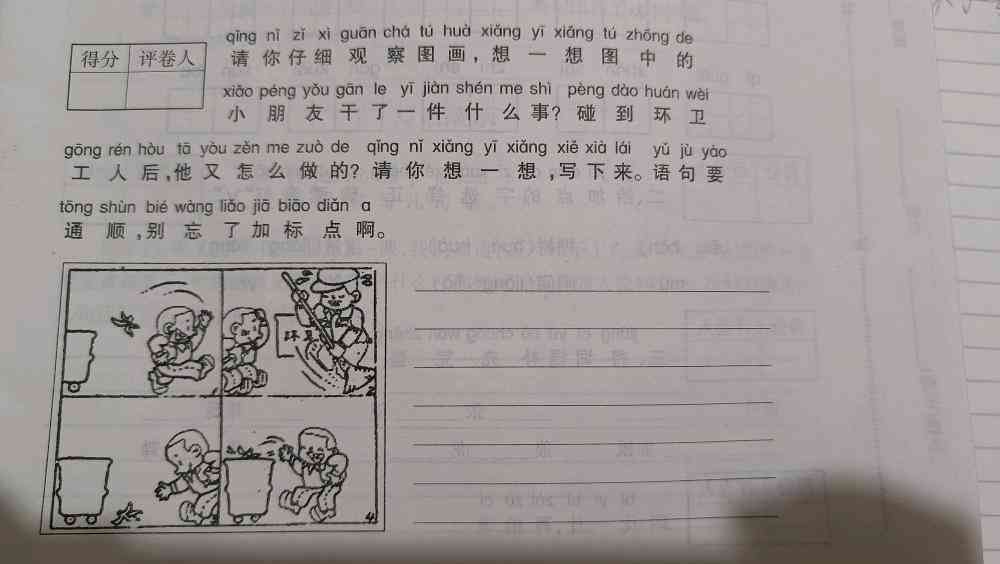 得分 评卷人
qǐng nǐ zǐ xì guān chá tú huà xiǎng yī xiǎng tú zhōng de
请你仔细观察图画，想一想图中的
xiǎo péng yǒu gān le yī jiàn shén me shì pèng dào huán wèi
小朋友干了一件什么事？碰到环卫
gōng rén hòu tā yòu zěn me zuò de qǐng nǐ xiǎng yī xiǎng xiě xià lái yǔ jù yào
工人后，他又怎么做的？请你想一想，写下来。语句要
tōng shùn bié wàng liǎo jiā biāo diǎn a
通顺，别忘了加标点啊。
环卫
2
3
4